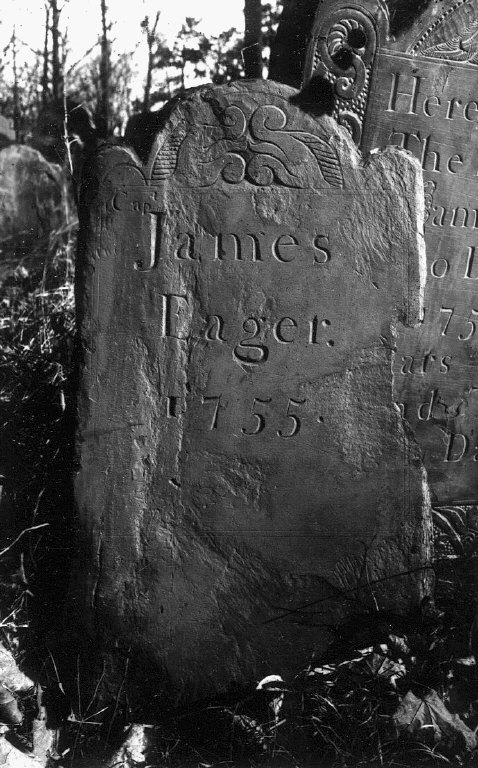 Cap
James
Eager.
1755.
Here
The
Jam
o L
175
ars
nd
Da